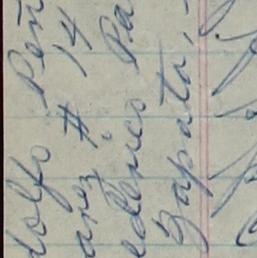 dolfo Peñ
anez # 14
ederico Pa
Zapata,